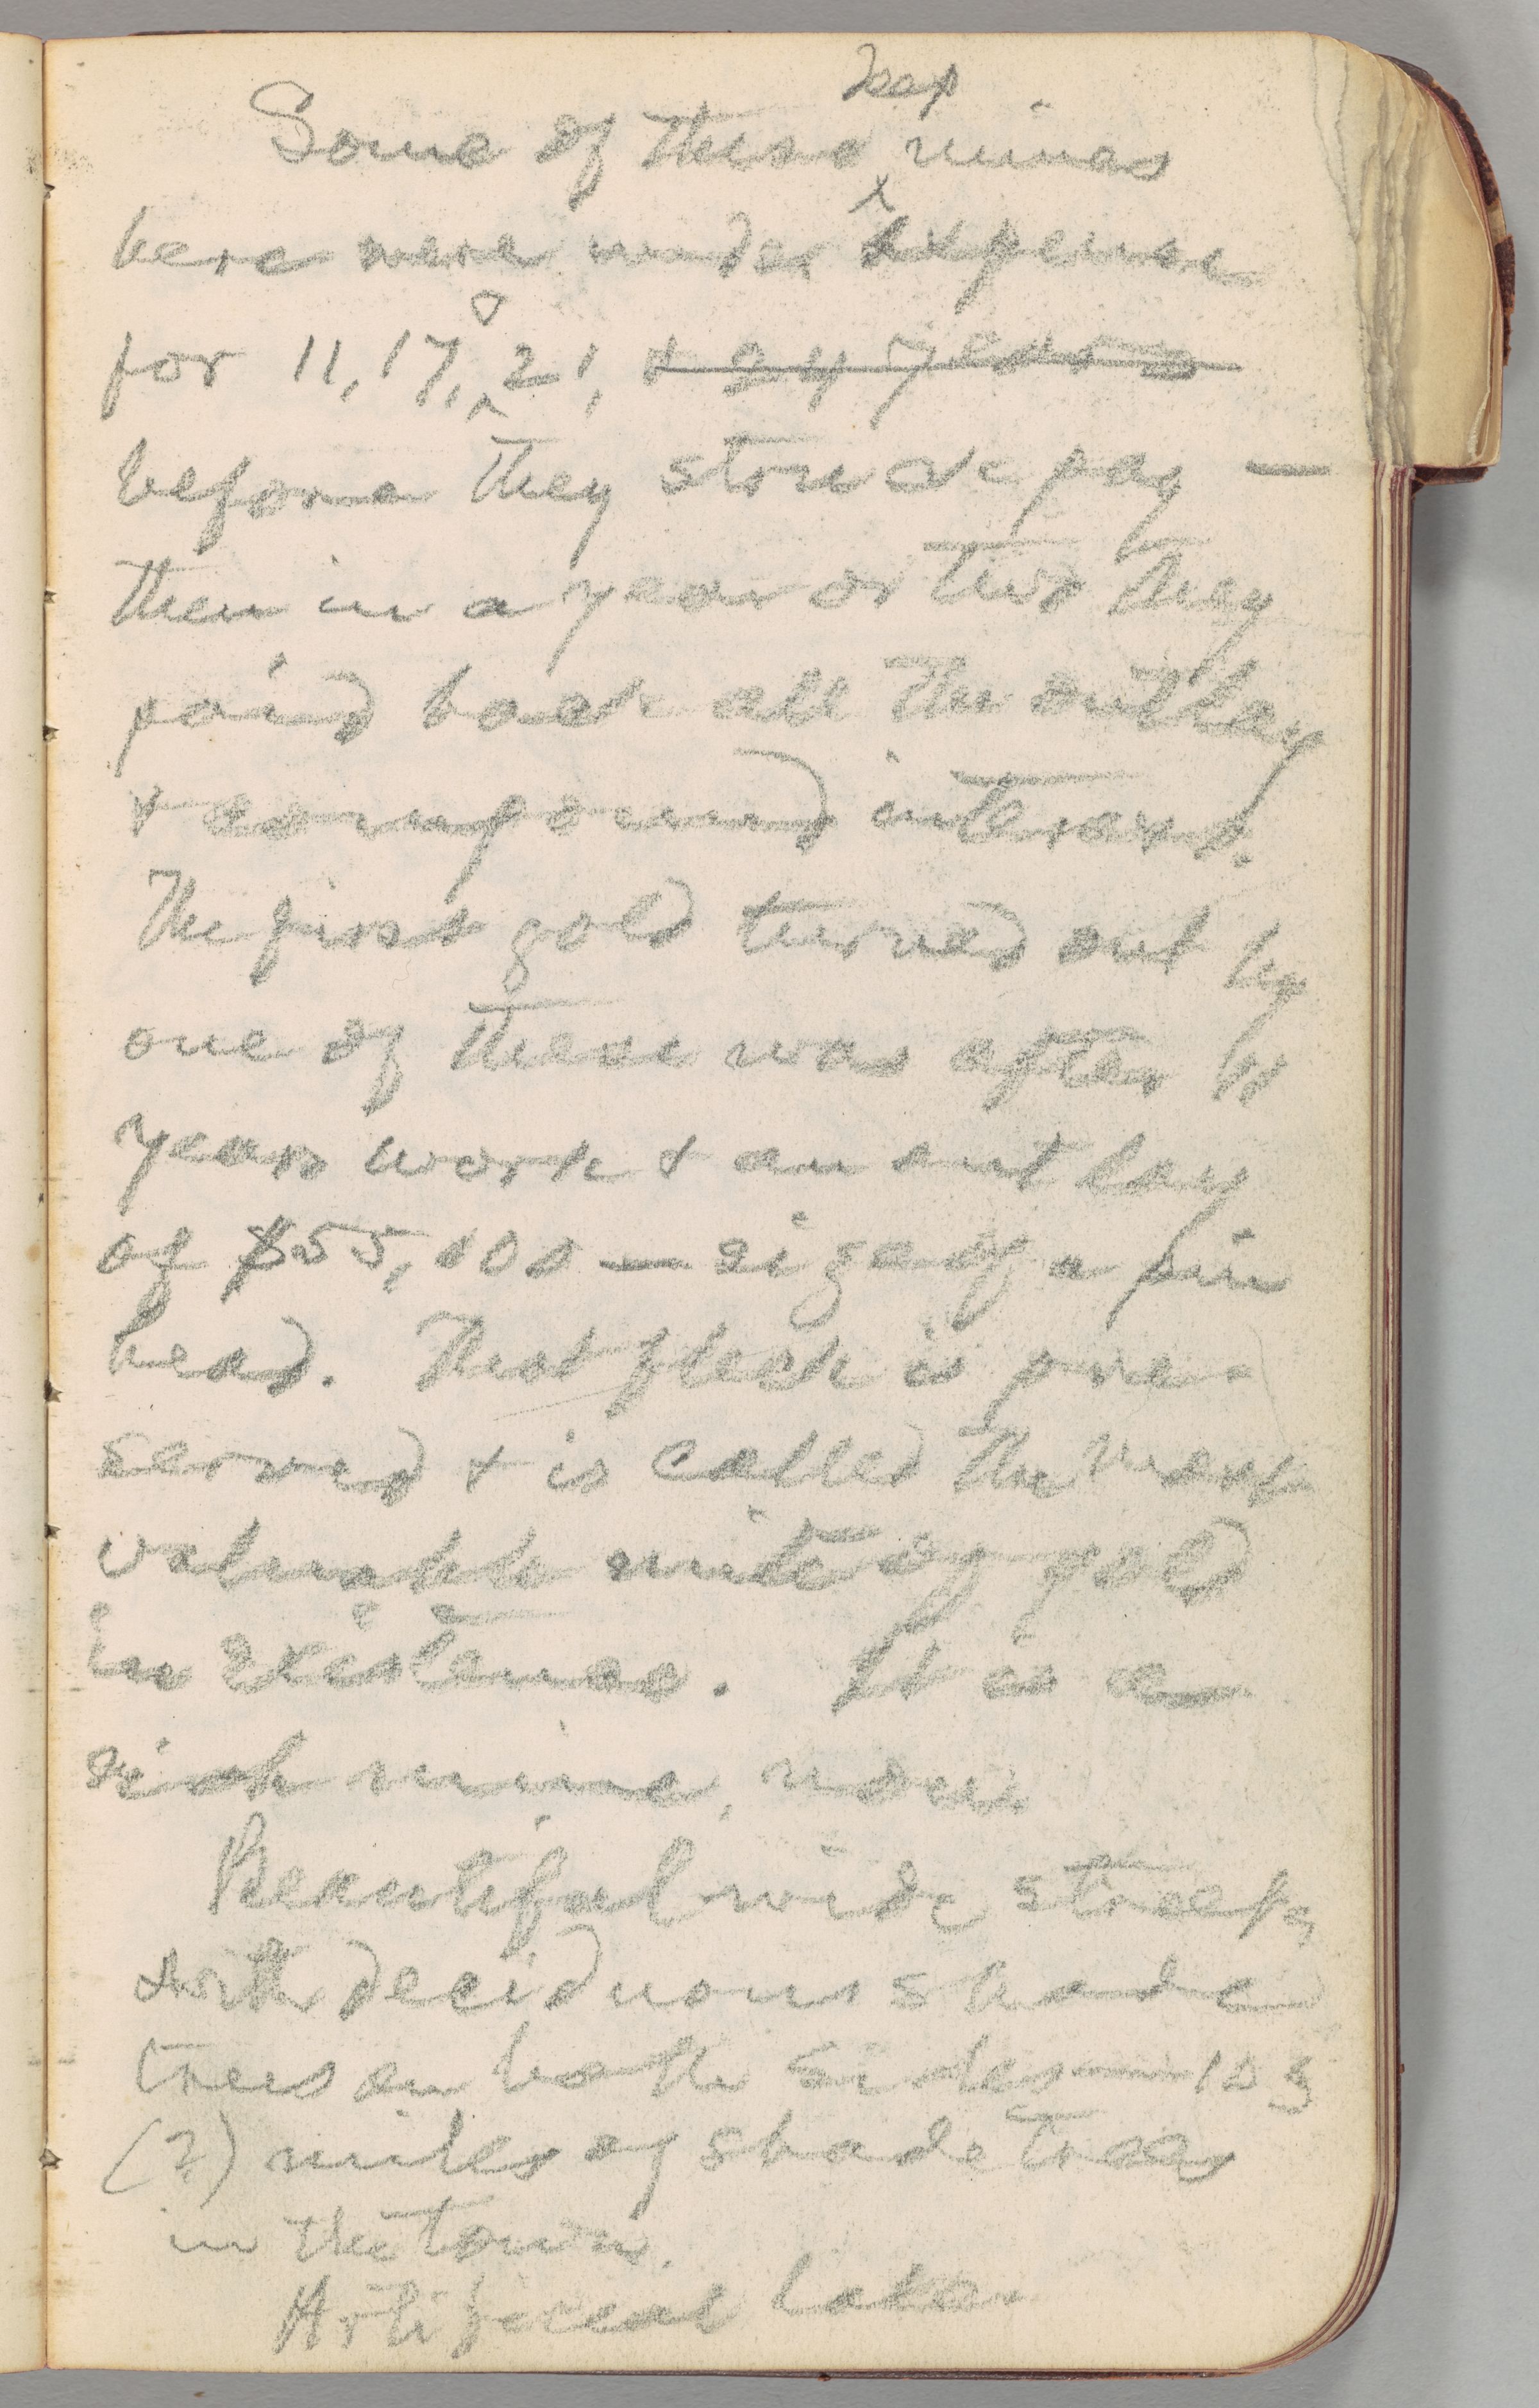 Some of these deep mines
here were under expense
for 11, 17, & 21, & 24 years
before they struck pay —
then in a year or two they
paid back all the outlay
& compound interest.
The first gold turned out by
one of these was after 11
years work & an outlay
of $55,000 — size of a pin
head. That fleck is pre-
served & is called the most
valuable mite of gold
in existence. It is a
rich mine, now
Beautiful wide streets,
with deciduous shade
trees on both sides — 103
(?) miles of shade trees
in the town.
Artificial lake